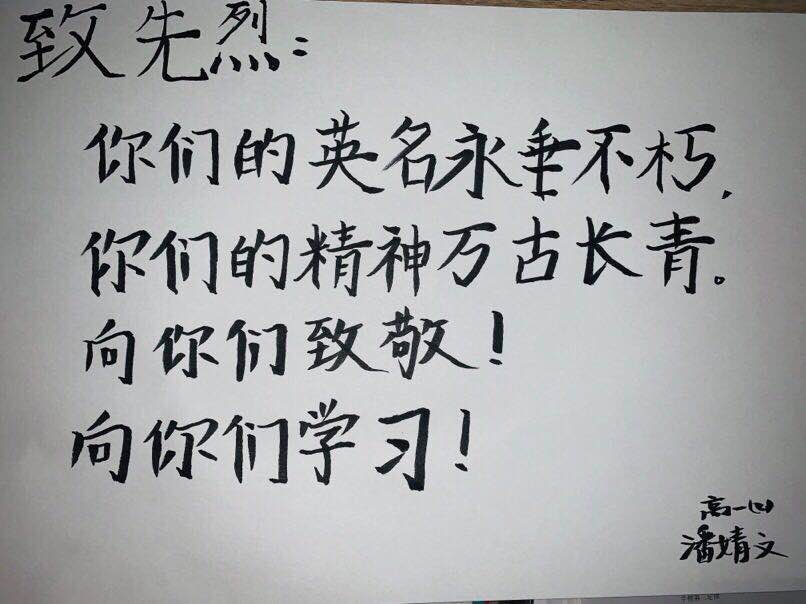 致先烈：
你们的英名永垂不朽，
你们的精神万古长青。
向你们致敬！
向你们学习！
高一(4)
潘婧文